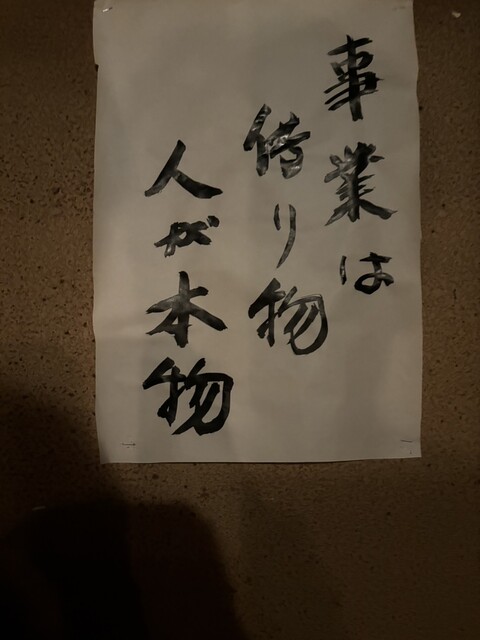 事業は
借り物
人が本物